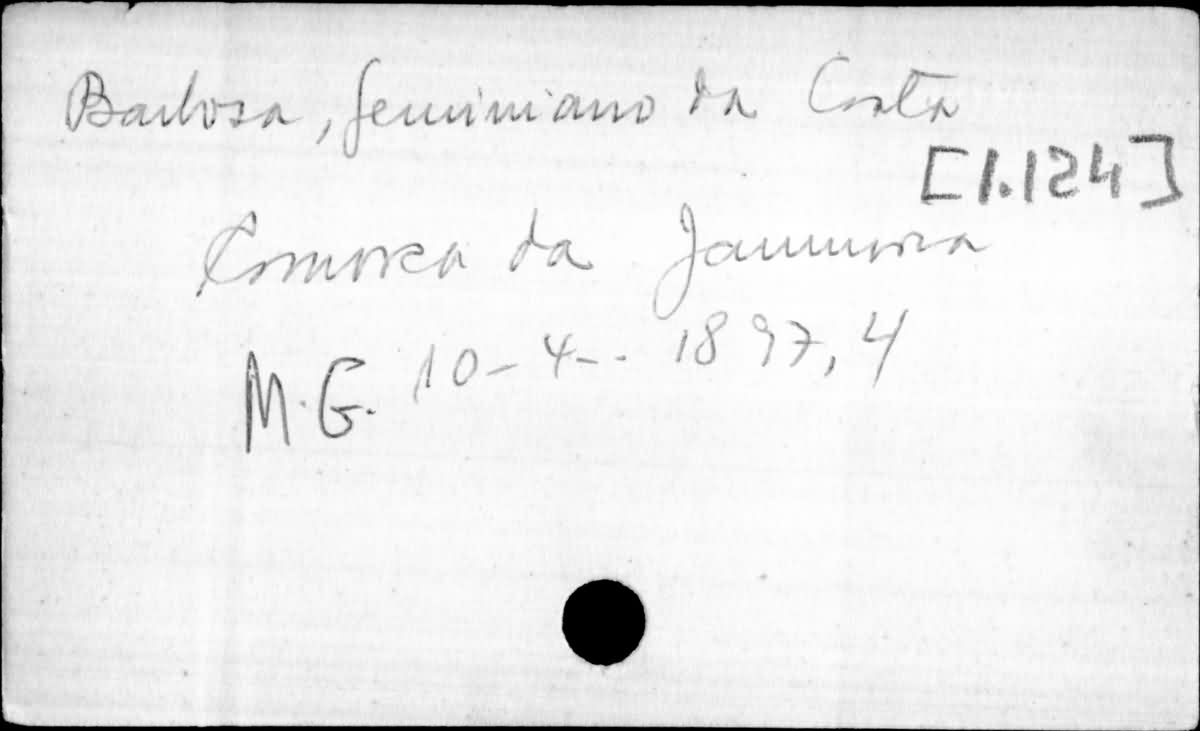 Barbosa, Geminiano da Costa
[1.124]
Comarca da Januaria
M.G. 10-4-. 1897, 4